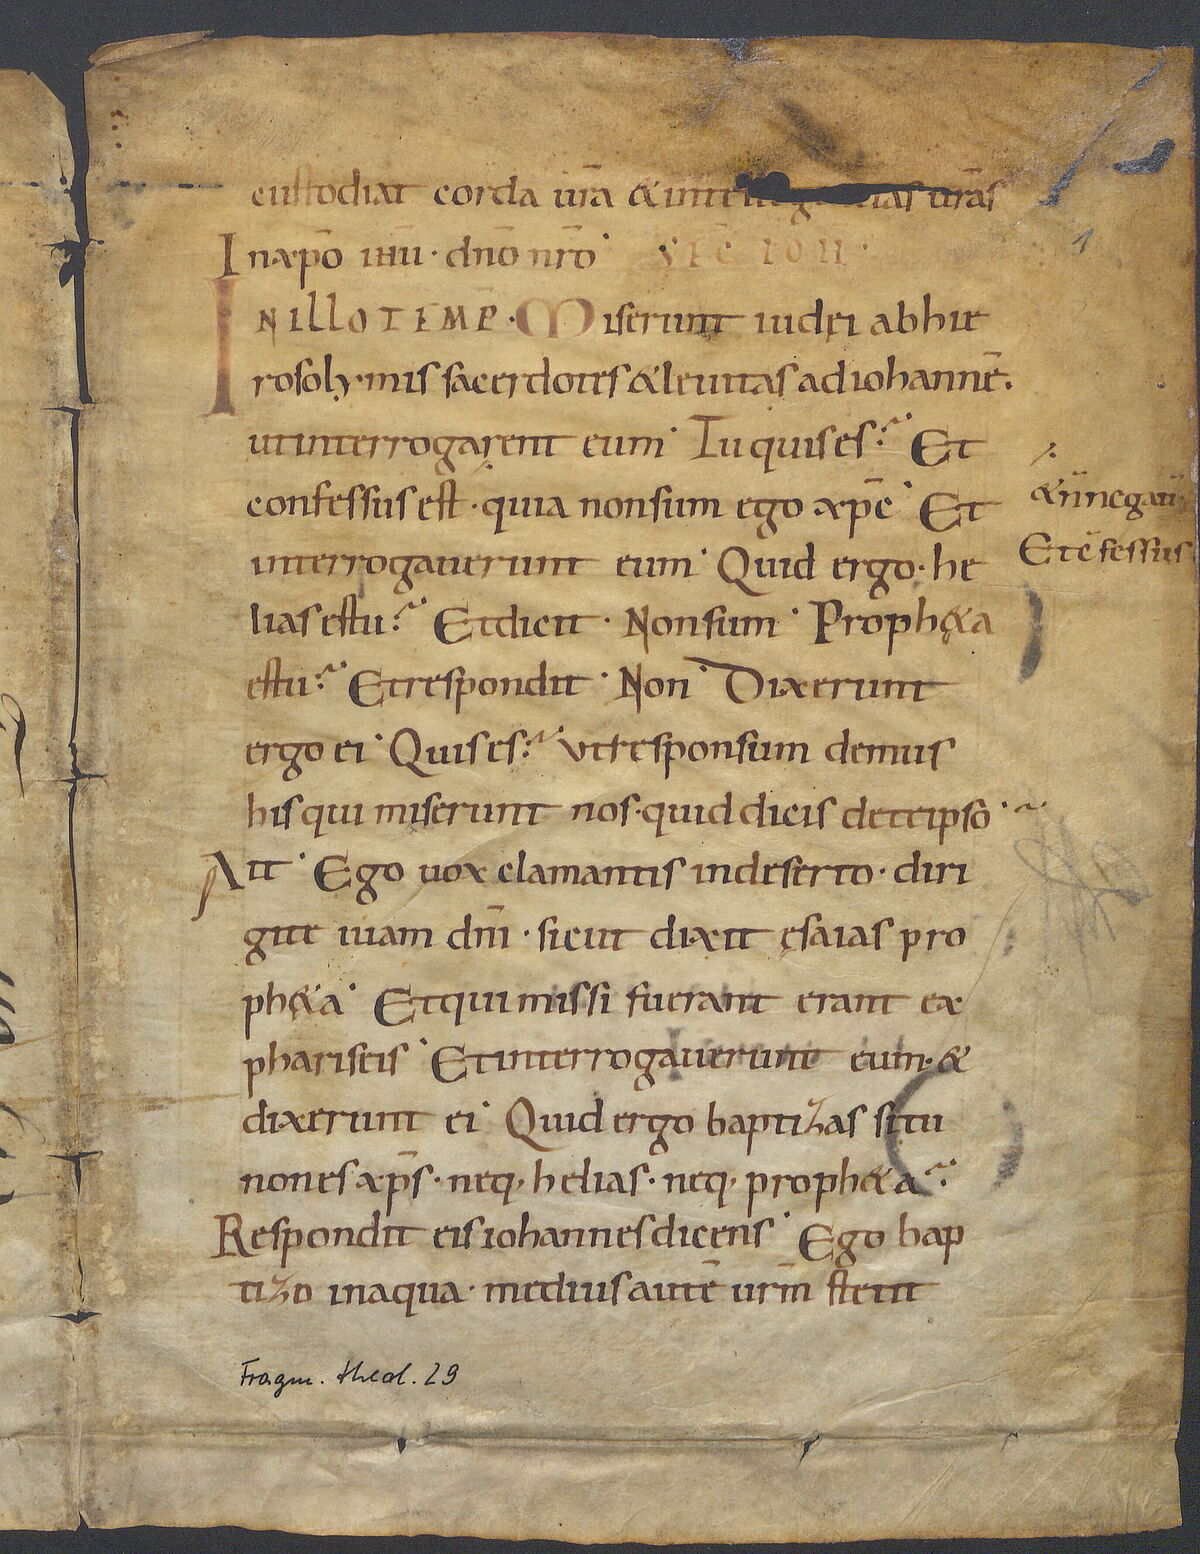 custodiat corda ur̄a & intellegentias ur̄as
In xp̄o ihū · dn̄o nr̄o · SEC̄ IOH̄ ·
IN ILLO TEMP̄ · Miserunt iudęi ab hie
rosolymis sacerdotes & leuitas ad iohannē·
ut interrogarent eum· Tu quis es? Et
confessus est · quia non sum ego xp̄c· Et
&n̄ negauit
Et c̄fessus
interrogauerunt eum· Quid ergo · he
lias es tu? Et dicit · Non sum · Proph&a
es tu? Et respondit · Non· Dixerunt
ergo ei· Quis es? ut responsum demus
his qui miserunt nos· quid dicis de te ipso?
Ait· Ego uox clamantis in deserto · diri
gite uiam dn̄i · sicut dixit ęsaias pro
ph&a· Et qui missi fuerant erant ex
phariseis· Et interrogauerunt eum· &
dixerunt ei· Quid ergo baptizas si tu
non es xp̄s · neq; helias · neq; proph&a?
Respondit eis iohannes dicens· Ego bap
tizo in aqua · medius autē ur̄m stetit
Fragm. theol. 29
1